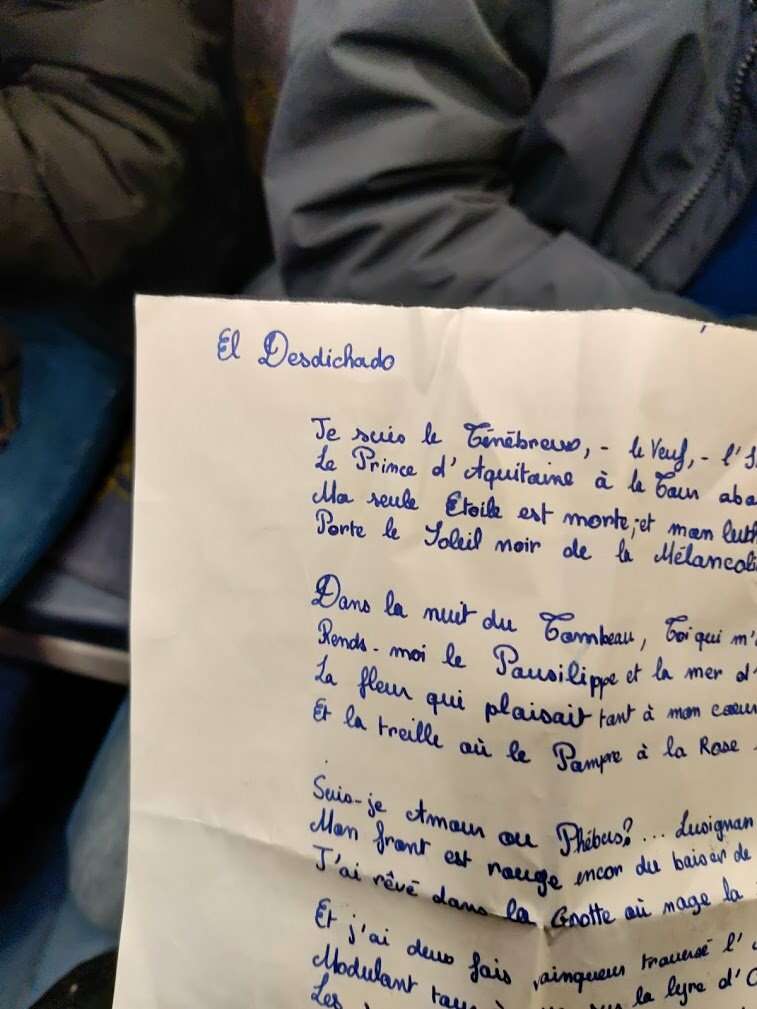 El Desdichado
Je suis le Ténébreux, - le Veuf, - l'I
Le Prince d'Aquitaine à la Tour aba
Ma seule Etoile est morte, et mon luth
Porte le Soleil noir de la Mélancoli
Dans la nuit du Tombeau, Toi qui m'
Rends-moi le Pausilippe et la mer d'
La fleur qui plaisait tant à mon coeur
Et la treille où le Pampre à la Rose
Suis-je Amour ou Phébus? ... Lusignan
Mon front est rouge encor du baiser de
J'ai rêvé dans la Grotte où nage la
Et j'ai deux fois vainqueur traversé l'
Modulant sur la lyre d'O
Les